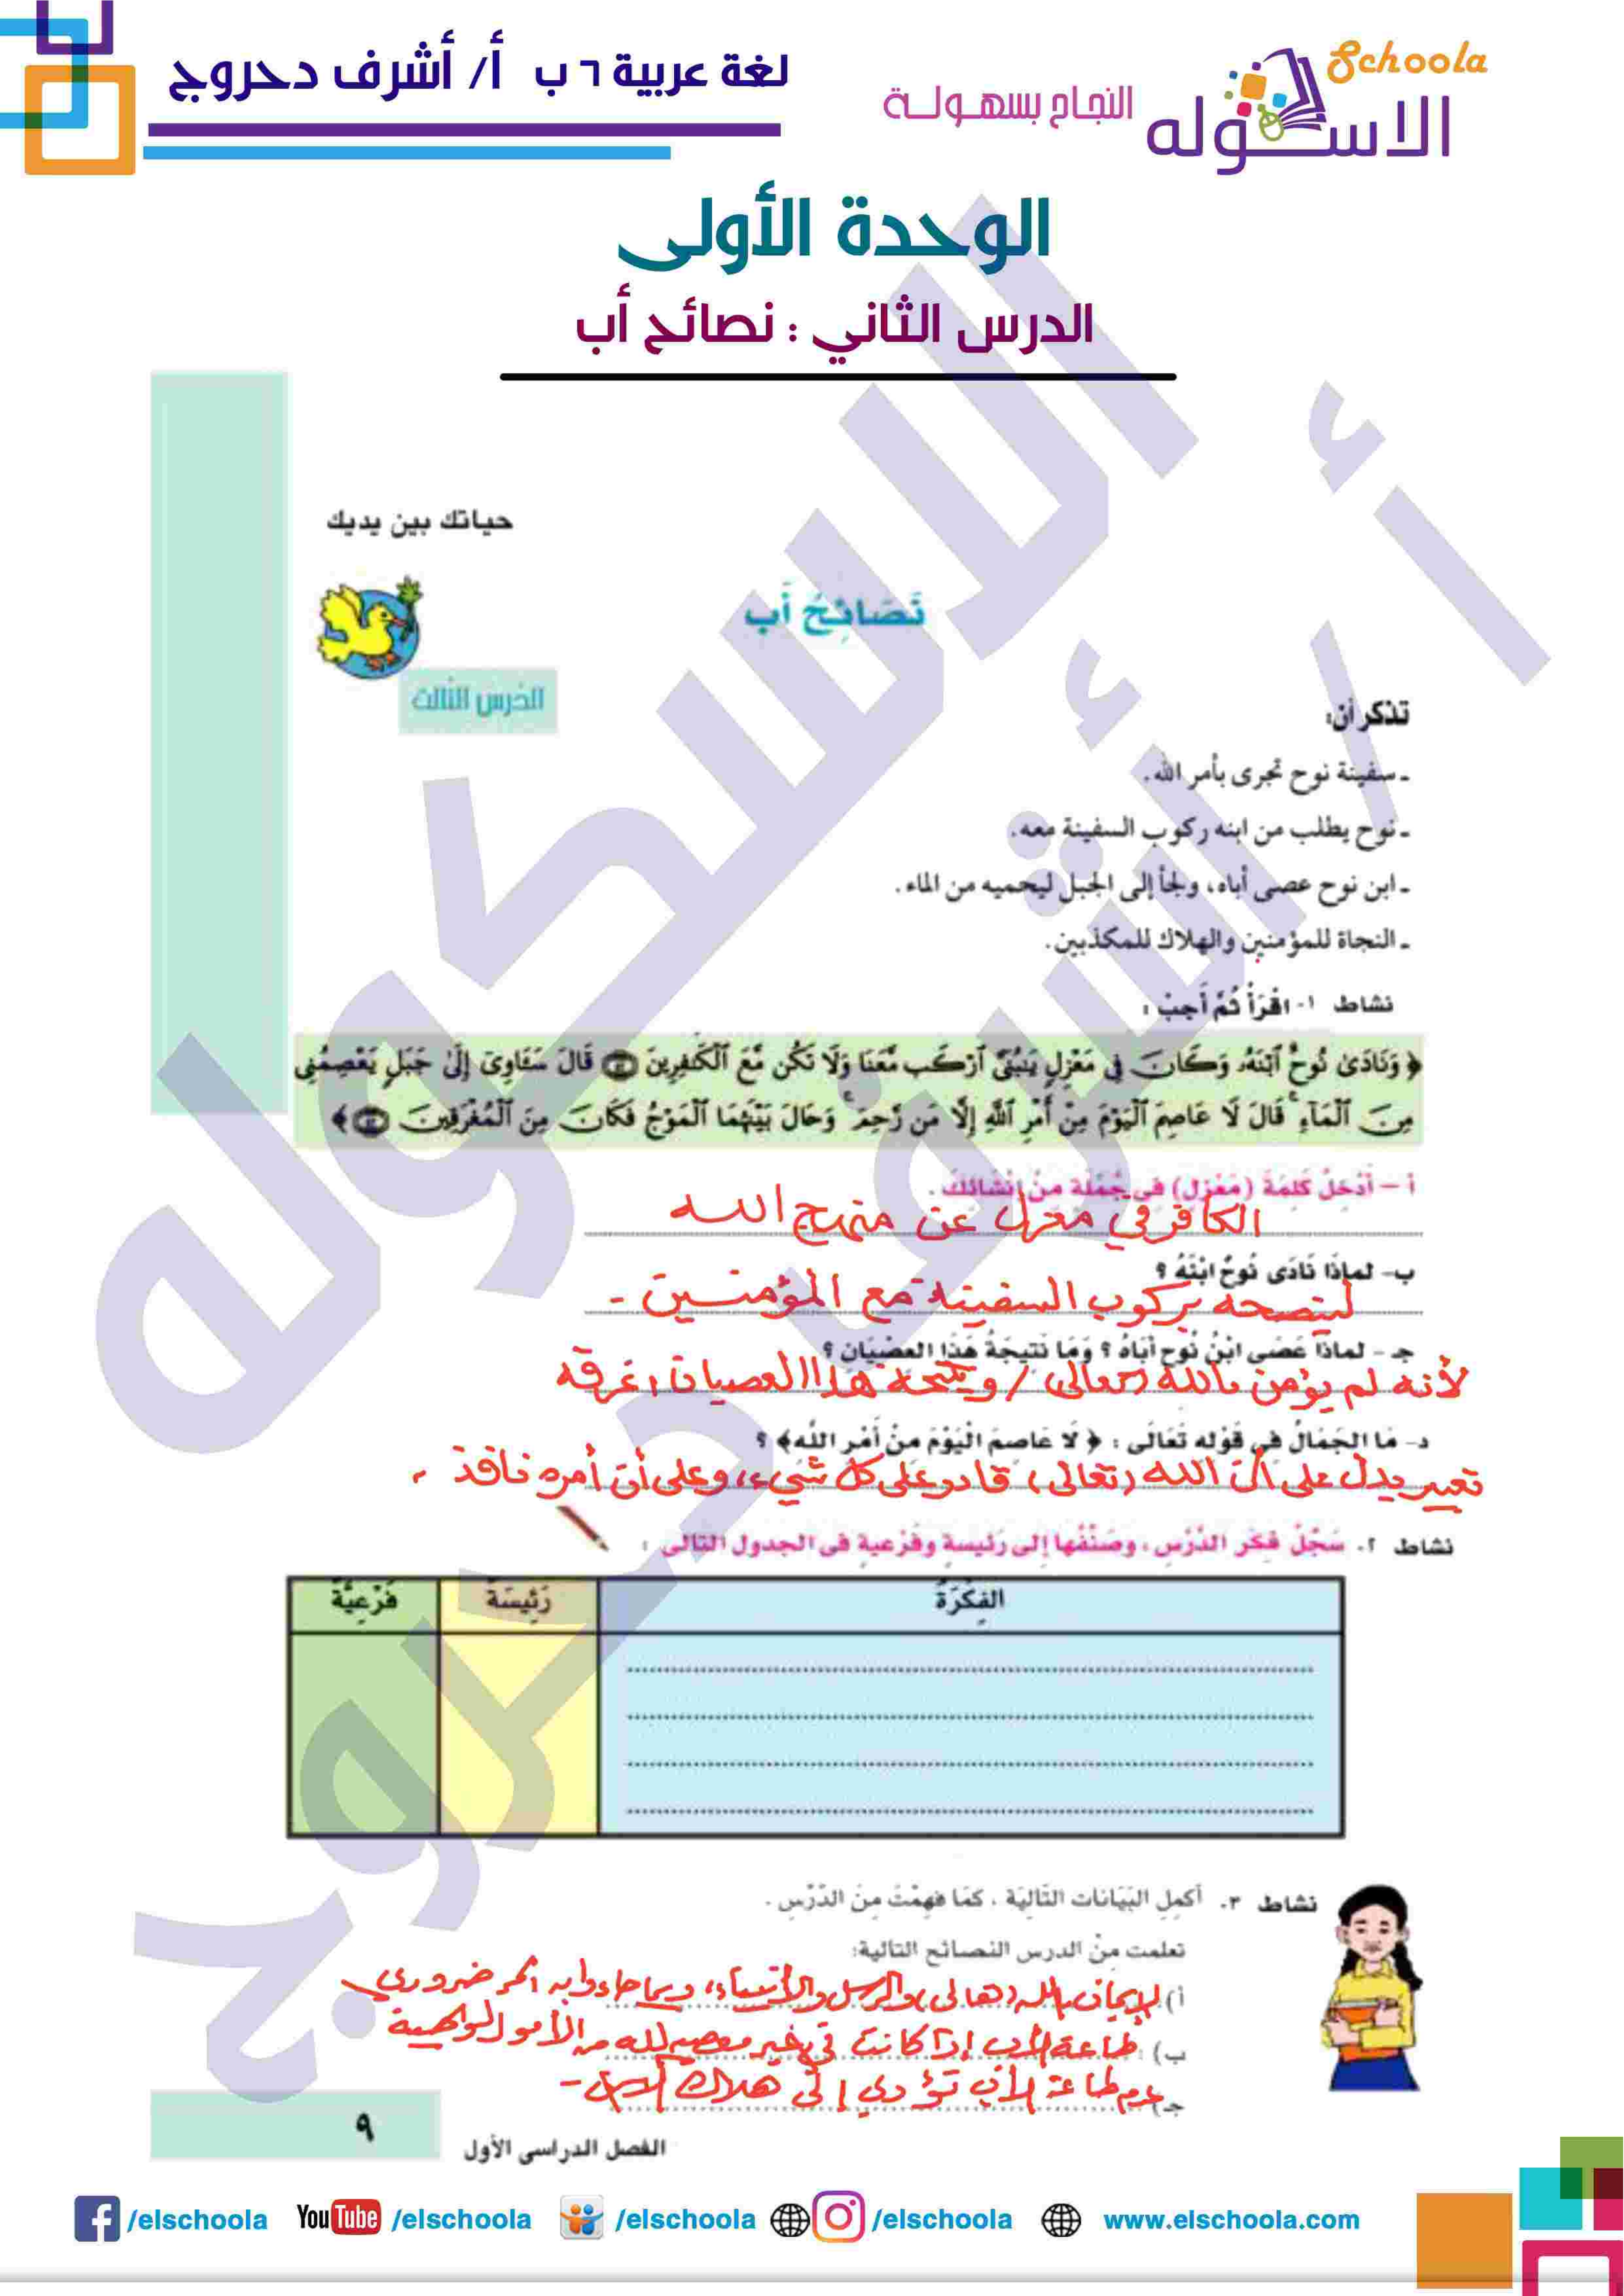 لغة عربية ٦ ب أ/ أشرف دحروج
Schoola
الاسكوله
النجاح بسهولة
الوحدة الأولى
الدرس الثاني : نصائح أب
حياتك بين يديك
نَصَائِحُ أَب
الدرس الثالث
تذكر أن:
ـ سفينة نوح تجرى بأمر الله.
ـ نوح يطلب من ابنه ركوب السفينة معه.
ـ ابن نوح عصى أباه، ولجأ إلى الجبل ليحميه من الماء.
ـ النجاة للمؤمنين والهلاك للمكذبين.
نشاط ١- اقْرَأْ ثُمَّ أَجِبْ :
﴿ وَنَادَىٰ نُوحٌ ٱبْنَهُۥ وَكَانَ فِى مَعْزِلٍ يَٰبُنَىَّ ٱرْكَب مَّعَنَا وَلَا تَكُن مَّعَ ٱلْكَٰفِرِينَ ٤٢ قَالَ سَـَٔاوِىٓ إِلَىٰ جَبَلٍ يَعْصِمُنِى
مِنَ ٱلْمَآءِ ۚ قَالَ لَا عَاصِمَ ٱلْيَوْمَ مِنْ أَمْرِ ٱللَّهِ إِلَّا مَن رَّحِمَ ۚ وَحَالَ بَيْنَهُمَا ٱلْمَوْجُ فَكَانَ مِنَ ٱلْمُغْرَقِينَ ٤٣ ﴾
أ – أَدْخِلْ كَلِمَةَ (مَعْزِلٍ) فِى جُمْلَةٍ مِنْ إِنْشَائِكَ .
الكافر في معزل عن منهج الله
ب- لماذَا نَادَى نُوحٌ ابْنَهُ ؟
لينصحه بركوب السفينة مع المؤمنين -
جـ - لماذَا عَصَى ابْنُ نُوحٍ أَبَاهُ ؟ وَمَا نَتِيجَةُ هَذَا العِصْيَانِ ؟
لأنه لم يؤمن بالله (تعالى) / ونتيجة هذا العصيان: غرقه
د- مَا الجَمَالُ فِى قَوْله تَعَالَى : ﴿ لَا عَاصِمَ الْيَوْمَ مِنْ أَمْرِ اللَّه﴾ ؟
تعبير يدل على أن الله (تعالى) قادر على كل شيء، وعلى أن أمره نافذ .
نشاط ٢. سَجِّلْ فِكَرَ الدَّرْسِ ، وصَنِّفْهَا إِلى رَئِيسةٍ وفَرْعيةٍ فى الجدول التالى :
الفِكْرَةُ رَئِيسَةٌ فَرْعِيَّةٌ
نشاط ٣. أكمِلِ البَيَانات التَّالِيَة ، كمَا فهِمْتَ مِنَ الدَّرْسِ .
تعلمت مِنْ الدرس النصائح التالية:
أ) الإيمان بالله (تعالى) والرسل والأنبياء، وبما جاءوا به أمر ضروري
ب) طاعة الأب إذا كانت في غير معصية لله من الأمور الواجبة
جـ) عدم طاعة الأب تؤدي إلى هلاك الابن -
٩
الفصل الدراسى الأول
/elschoola YouTube /elschoola /elschoola /elschoola www.elschoola.com
الاسكوله
أ / أشرف دحروج